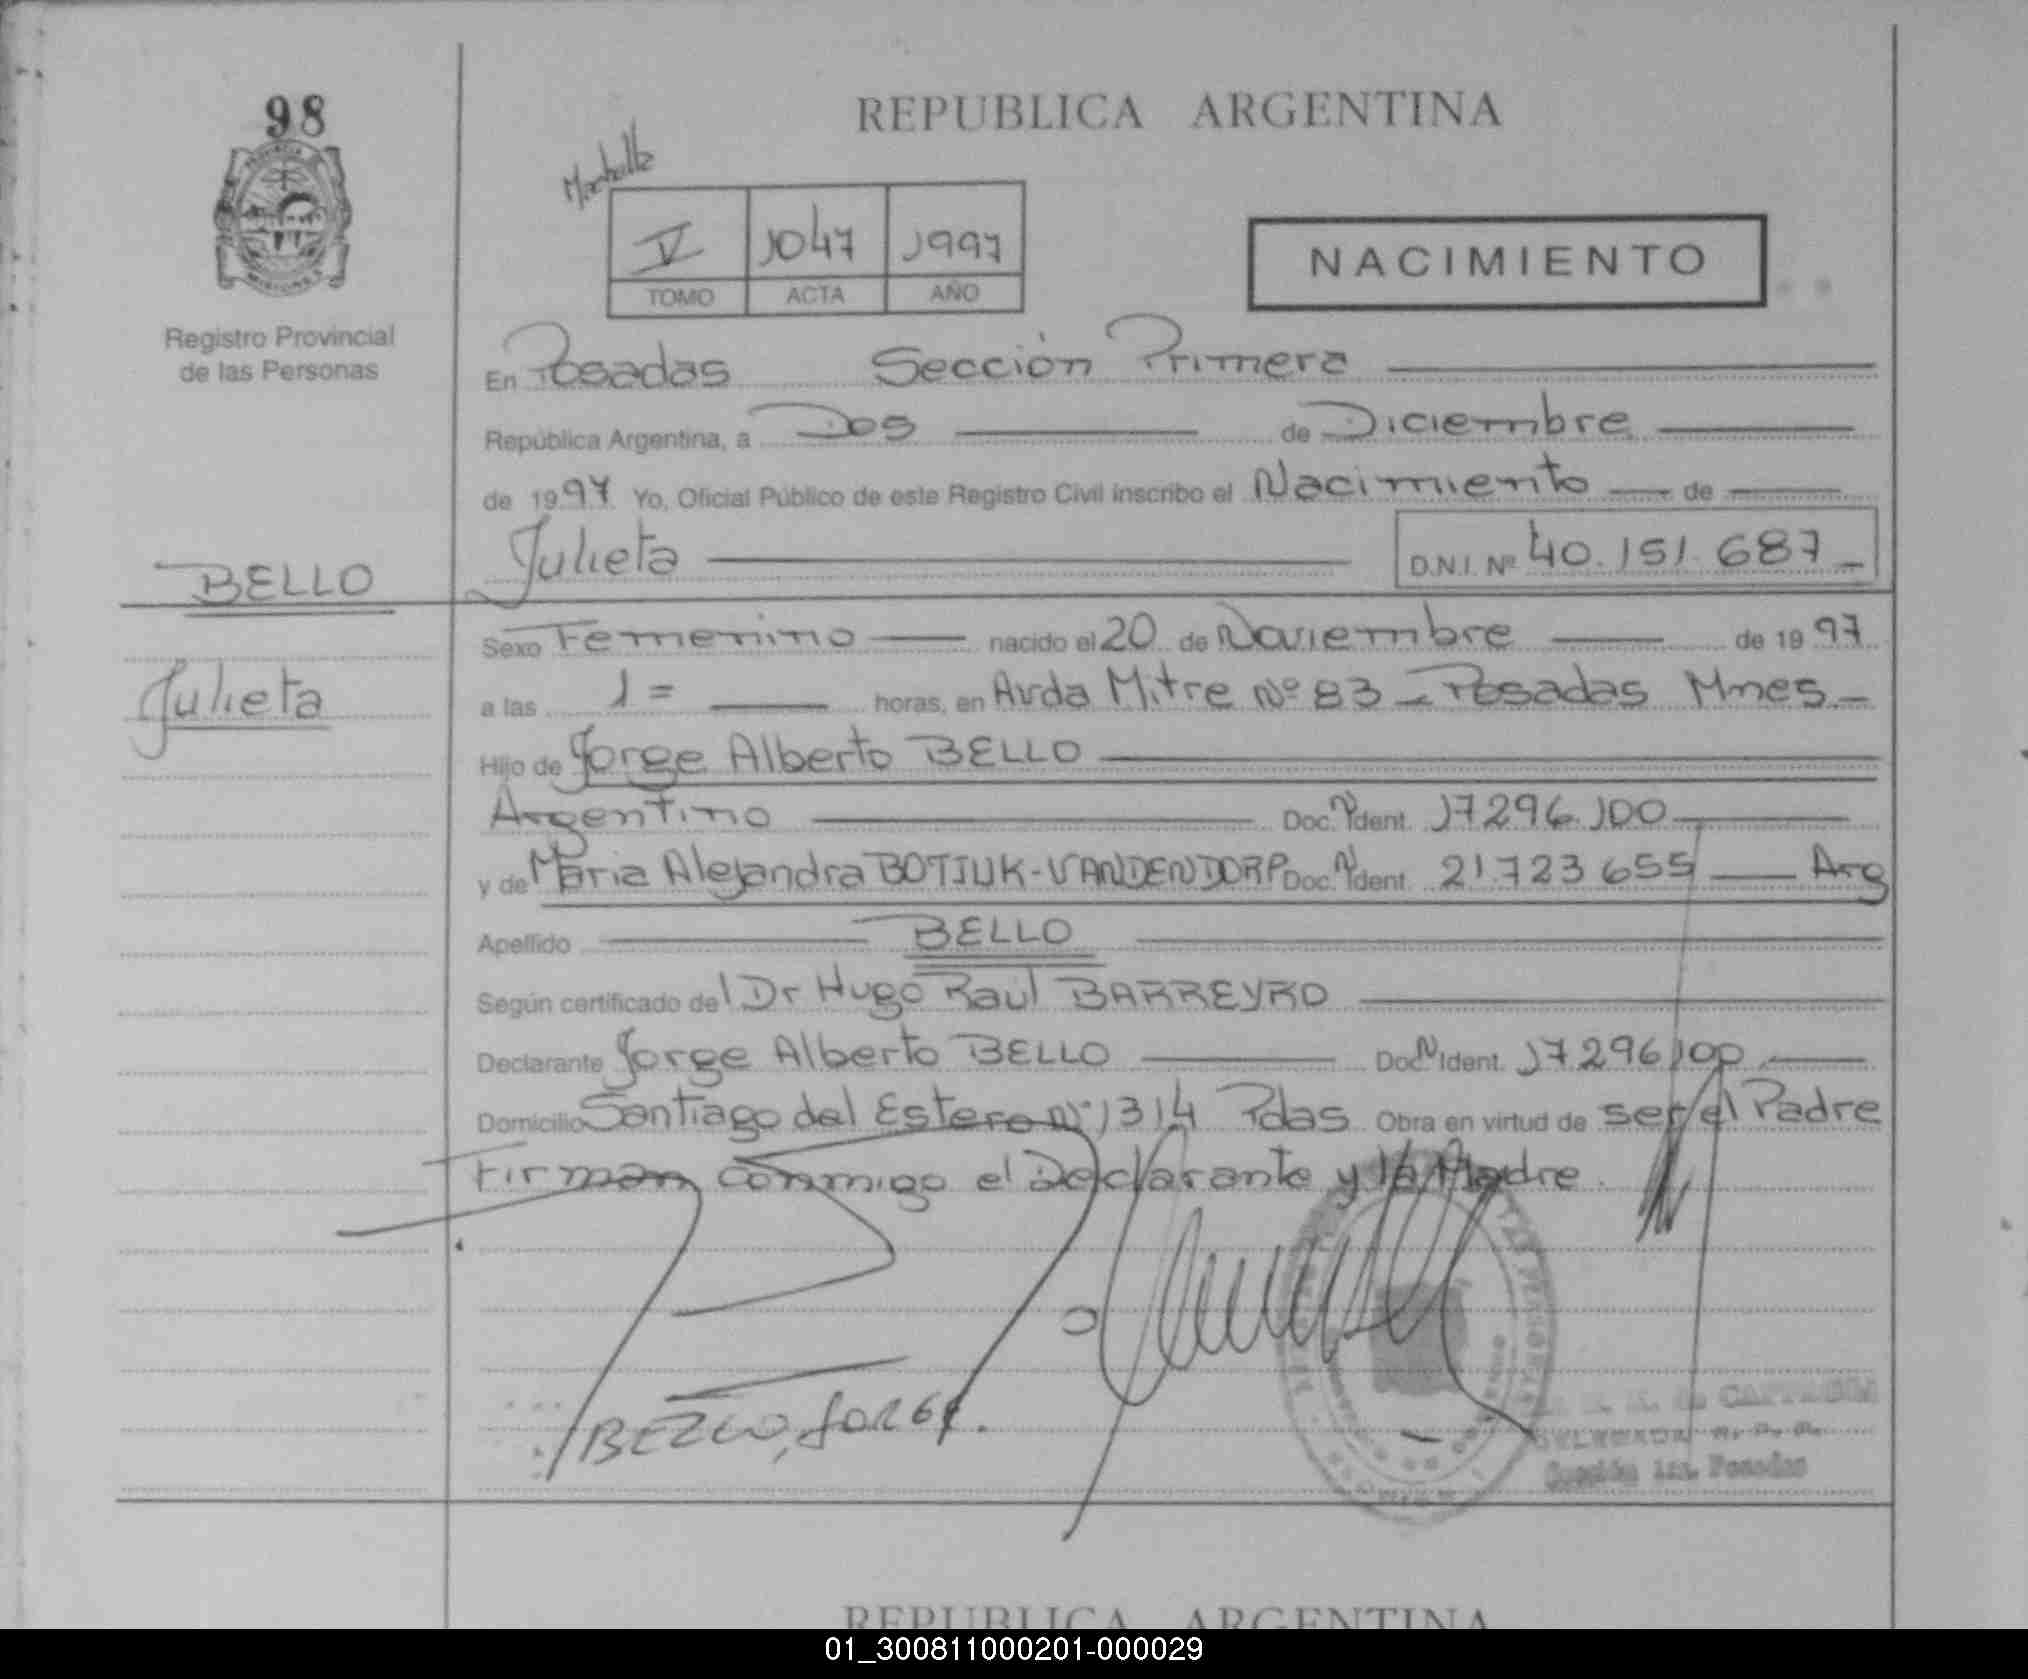 98
REPUBLICA ARGENTINA
V 1047 1997
TOMO ACTA AÑO
NACIMIENTO
PROVINCIA
MISIONES
Registro Provincial
de las Personas
En Posadas Sección Primera
República Argentina, a Dos de Diciembre
de 1997 Yo, Oficial Público de este Registro Civil inscribo el Nacimiento de
BELLO
Julieta
Julieta D.N.I. Nº 40.151.687
Sexo Femenino nacido el 20 de Noviembre de 1997
a las 1= horas, en Avda Mitre Nº 83 - Posadas Mnes.
Hijo de Jorge Alberto BELLO
Argentino Doc. Ident. 17296.100
y de Maria Alejandra BOTIUK-VANDENDORP Doc. Ident. 21.723 655 Arg
Apellido BELLO
Según certificado del Dr Hugo Raúl BARREYRO
Declarante Jorge Alberto BELLO Doc. Ident. 17296100
Domicilio Santiago del Estero Nº 1314 Pdas. Obra en virtud de ser el Padre
Firman conmigo el Declarante y la Madre.
BELLO, JORGE.
DELEGADA R. P. P.
Sección 1ra. Posadas
REPUBLICA ARGENTINA
01_300811000201-000029